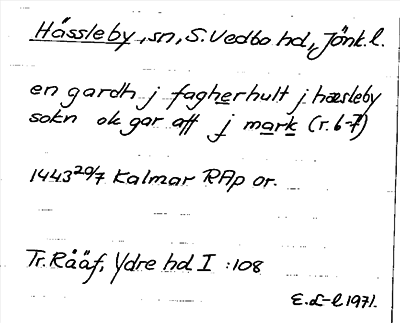 Hässleby, sn, S. Vedbo hd, Jönk. l.
en gardh j fagherhult j hæsleby
sokn ok gar aff j mark (r. 6-7)
1443 20/7 Kalmar RAp or.
Tr. Rääf, Ydre hd I :108
E.L-l 1971.